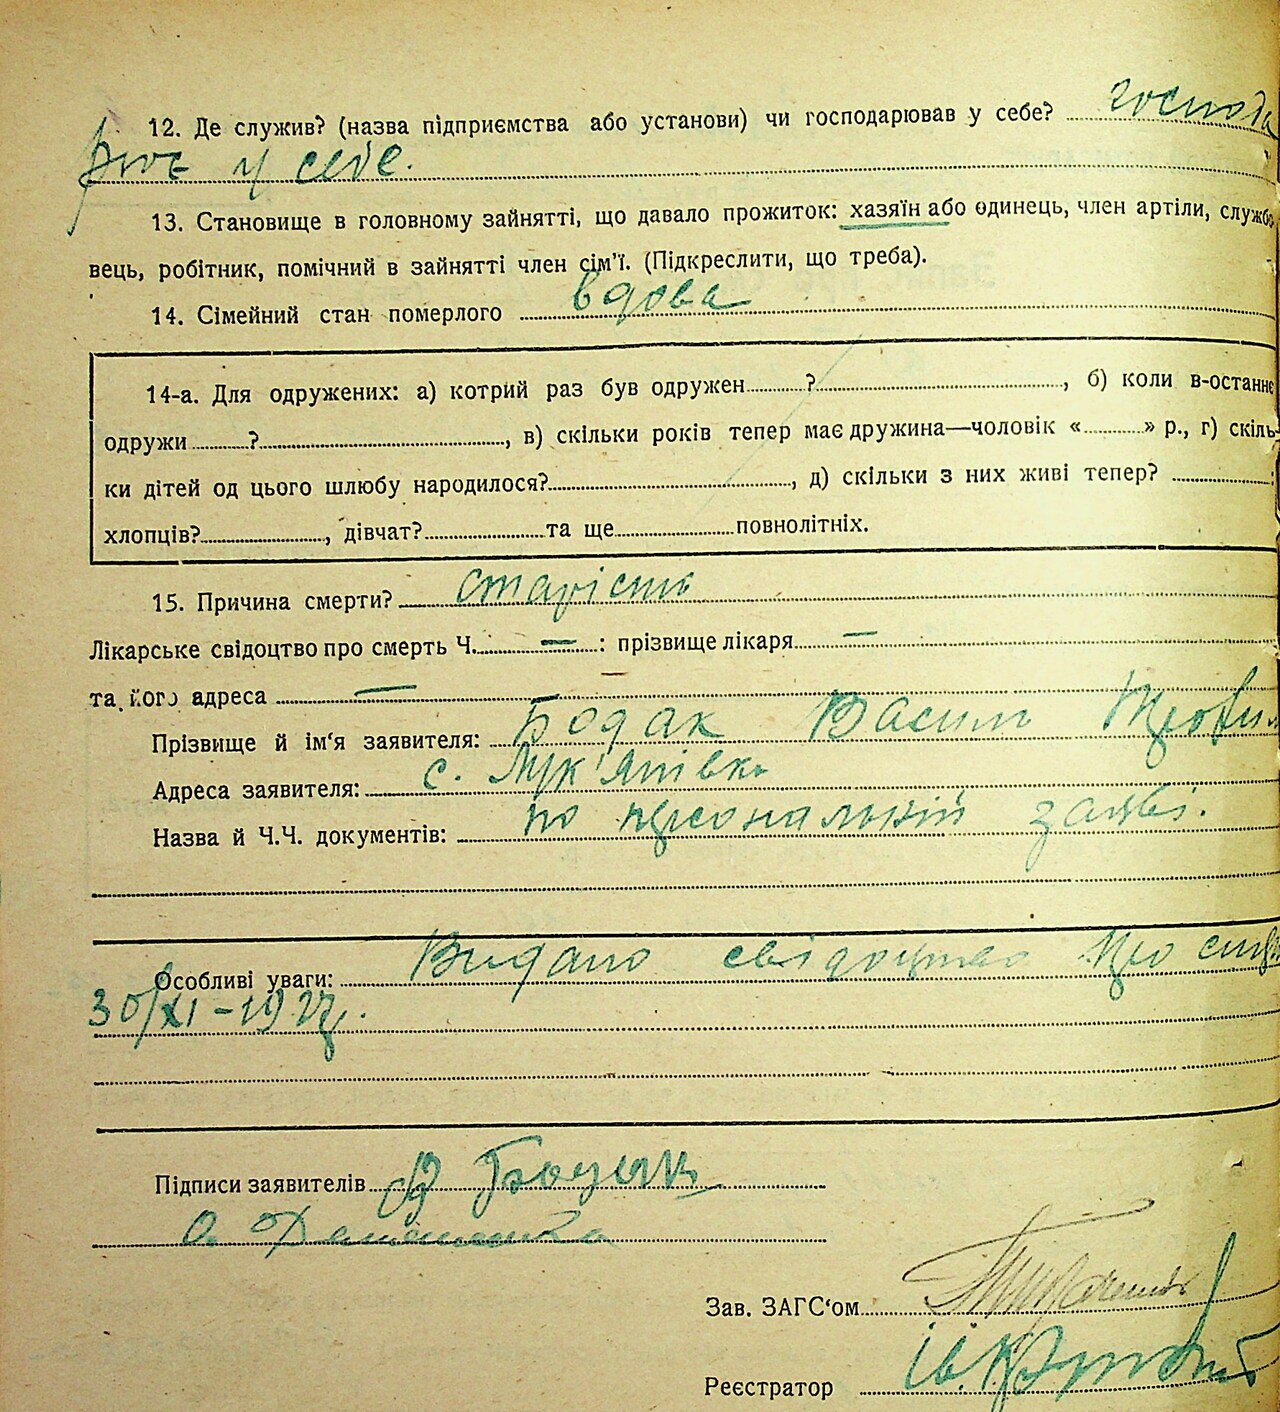 12. Де служив? (назва підприємства або установи) чи господарював у себе? господа
рює у себе.
13. Становище в головному зайнятті, що давало прожиток: хазяїн або одинець, член артіли, службо
вець, робітник, помічний в зайнятті член сім'ї. (Підкреслити, що треба).
14. Сімейний стан померлого вдова
14-а. Для одружених: а) котрий раз був одружен ?, б) коли в-останнє
одружи ?, в) скільки років тепер має дружина—чоловік « » р., г) скіль-
ки дітей од цього шлюбу народилося?, д) скільки з них живі тепер?
хлопців?, дівчат? та ще повнолітніх.
15. Причина смерти? старість
Лікарське свідоцтво про смерть Ч. — : прізвище лікаря —
та його адреса —
Прізвище й ім'я заявителя: Бодак Василь
Адреса заявителя: с. Лук'янівка
Назва й Ч.Ч. документів: по персональній заяві.
Особливі уваги: Видано свідоцтво про
30/XI-1927.
Підписи заявителів
Зав. ЗАГС'ом
Реєстратор Ів.